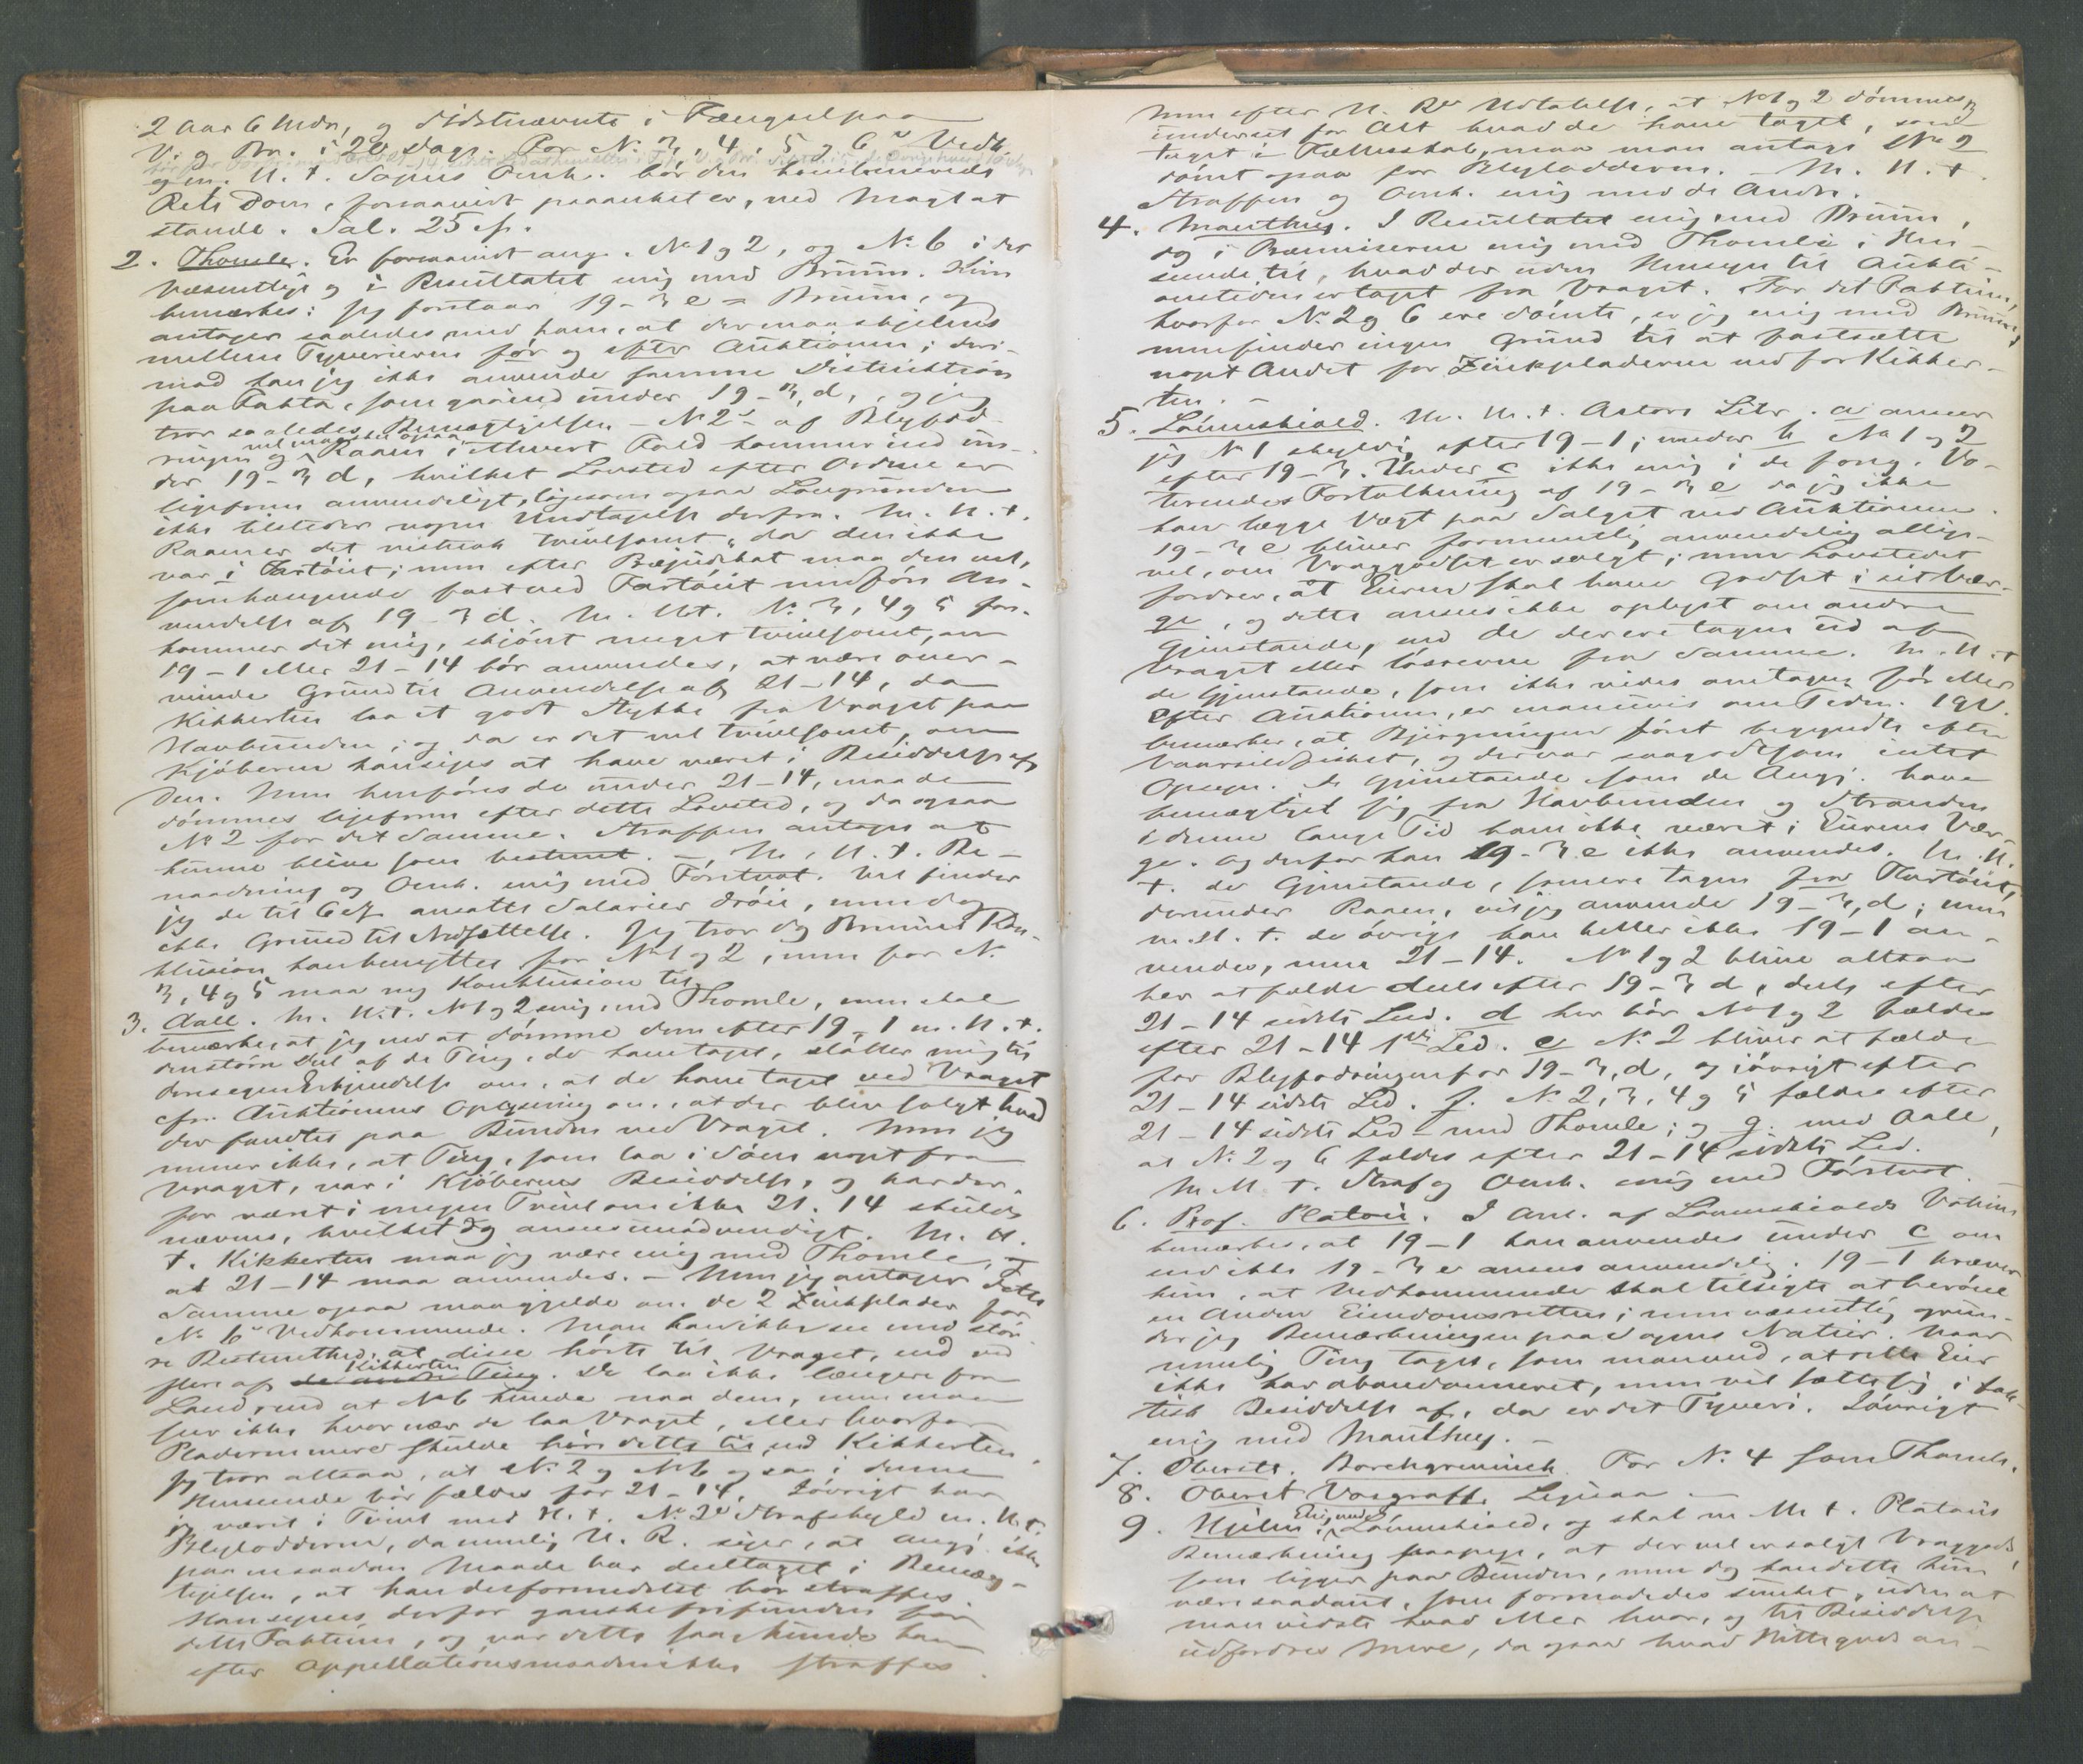 2 Aar 6 Mdr, og Sidstnævnte i Fængsel paa
V. og Br. i 20 Dage. For N. 3, 4, 5 og 6s Vedk.
og m. H. t. Sagens Omk. bør den
Rets Dom, forsaavidt paaanket er, ved Magt at
stande. Sal. 25 Sp.
2. Thomle. Er forsaavidt ang. No 1 og 2, og No 6 i det
Væsentlige og i Resultatet enig med Bruun. Kun
bemærkes: Jeg forstaar 19-3 e = Bruun, og
antager saaledes med ham, at der maa skjelnes
mellem Tyverierne før og efter Auktionen; deri-
mod kan jeg ikke anvende samme Distinktion
paa Fakta, som gaa ind under 19-3, d, og jeg
tror saaledes, Bemægtigelsen - No 2s - af Blyfod-
ringen og vel maaske ogsaa Raaen i ethvert Fald kommer ind un-
der 19-3 d, hvilket Lovsted efter Ordene er
ligefrem anvendeligt, ligesom ogsaa Lovgrunden
ikke tilsteder nogen Undtagelse derfra. M. H. t.
Raaen er det vistnok tvivlsomt, da den ikke
var i Fartøiet; men efter Præjudikat maa den vel,
som hængende fast ved Fartøiet medføre An-
vendelse af 19-3 d. M. H. t. No 3, 4 og 5 fore-
kommer det mig, skjønt meget tvivlsomt, om
19-1 eller 21-14 bør anvendes, at være over-
veiende Grund til Anvendelse af 21-14, da
Kikkerten laa et godt Stykke fra Vraget paa
Havbunden; og da er det vel tvivlsomt, om
Kjøberen kan siges at have været i Besiddelse af
den. Men henføres de under 21-14, maa de
dømmes ligefrem efter dette Lovsted, og da ogsaa
No 2 for det Samme. Straffen antages at
kunne blive som bestemt. - M. H. t. Be-
naadning og Omk. enig med Førstvot. Vel finder
jeg de til 6 Sp. ansatte Salarier drøie, men dog
ikke Grund til Nedsættelse. Jeg tror dog Bruuns Kon-
klusion kan benyttes for No 1 og 2, men for N.
3, 4 og 5 maa ny Konklusion til.
3. Aall. M. H. t. No 1 og 2 enig med Thomle, men skal
bemærke, at jeg ved at dømme dem efter 19-1 m. H. t.
den større Del af de Ting, de have taget, støtter mig til
deres egen Erkjendelse om, at de have taget ved Vraget
cfr. Auktionens Oplysning om, at der blev solgt hvad
der fandtes paa Bunden ved Vraget. Men jeg
mener ikke, at Ting, som laa i Søen noget fra
Vraget, var i Kjøberens Besiddelse, og har der-
for været i megen Tvivl om ikke 21. 14 skulde
nævnes, hvilket dog ansees unødvendigt. M. H.
t. Kikkerten maa jeg være enig med Thomle, i
at 21-14 maa anvendes. - Men jeg antager dette
Samme ogsaa maa gjælde om de 2 Zinkplader for
No 6s Vedkommende. Man kan ikke se med stør-
re Bestemthed, at disse hørte til Vraget, end ved
flere af de andre Ting Kikkerten. De laa ikke længere fra
Land end at No 6 kunde naa dem, men man
ser ikke hvor nær de laa Vraget, eller hvorfor
Pladerne mere skulde høre dette til end Kikkerten.
Jeg tror altsaa, at No 2 og No 6 ogsaa i denne
Henseende bør fældes for 21-14. Iøvrigt har
jeg været i Tvivl med H. t. No 2s Strafskyld m. H. t.
Blylodderne, da nemlig U. R. siger, at Angj. ikke
paa en saadan Maade har deeltaget i Bemæg-
tigelsen, at han desformedelst bør straffes.
Han synes derfor ganske frifunden for
dette Faktum, og var dette saa, kunde han
efter Appellationsmaaden ikke straffes.
Men efter U. Rs Udtalelse, at No 1 og 2 dømmes
under eet for Alt hvad de have taget, som
taget i Fællesskab, maa man antage No 2
dømt ogsaa for Blylodderne. - M. H. t.
Straffen og Omk. enig med de Andre.
4. Manthey. I Resultatet enig med Bruun,
og i Præmisserne enig med Thomle i Hen-
seende til, hvad der uden Hensyn til Aukti-
onstiden er taget fra Vraget. For det Faktum,
hvorfor No 2 og 6 ere dømte, er jeg enig med Bruun,
men finder ingen Grund til at fastsætte
noget Andet for Zinkpladerne end for Kikker-
ten. -
5. Løvenskiold. M. H. t. Actors Litr. a anser
jeg No 1 skyldig efter 19-1; under b No 1 og 2
efter 19-3. Under c ikke enig i de foreg. Vo-
terendes Fortolkning af 19-3 e da jeg ikke
kan lægge Vægt paa Salget ved Auktionen.
19-3 e bliver formentlig anvendelig allige-
vel, om Vraggodset er solgt; men Lovstedet
fordrer, at Eieren skal have Godset i sit Vær-
ge, og dette ansees ikke oplyst om andre
Gjenstande, end de der ere tagne ud af
Vraget eller løsrevne fra Samme. M. H. t.
de Gjenstande, som ikke vides om tagne før eller
efter Auktionen, er man uvis om Tiden.
bemærker, at Bjergningen først begyndte efter
Vaarsildfisket, og der var saagodtsom intet
Opsyn. De Gjenstande som de Angj. have
bemægtiget sig fra Havbunden og Stranden
i denne lange Tid have ikke været i Eierens Vær-
ge. Og derfor kan 19-3 e ikke anvendes. M. H.
t. de Gjenstande, som ere tagne fra Fartøiet,
derunder Raaen, vil jeg anvende 19-3, d; men
m. H. t. de øvrige kan heller ikke 19-1 an-
vendes, men 21-14. No 1 og 2 blive altsaa
her at fælde deels efter 19-3 d, deels efter
21-14 sidste Led. d her bør No 1 og 2 fældes
efter 21-14 1ste Led. e No 2 bliver at fælde
for Blyfodringen for 19-3, d, og iøvrigt efter
21-14 sidste Led. f. No 2, 3, 4 og 5 fældes efter
21-14 sidste Led - med Thomle; og g. med Aall,
at No 2 og 6 fældes efter 21-14 sidste Led.
M. H. t. Straf og Omk. enig med Førstvot.
6. Prof. Platou. I Anl. af Løvenskiolds Votum
bemærkes, at 19-1 kan anvendes under c om
end ikke 19-3 e ansees anvendelig. 19-1 kræver
kun, at Vedkommende skal tilsigte at berøve
en Anden Eiendomsretten; men væsentlig grun-
der jeg Bemærkningen paa Sagens Natur. Naar
nemlig Ting tages, som man ved, at rette Eier
ikke har abandonneret, men vil sætte sig i fak-
tisk Besiddelse af, da er det Tyveri. Iøvrigt
enig med Manthey. -
7. Oberstl. Borchgrevinck. For No. 4 som Thomle.
8. Oberst Vosgraff. Ligesaa -
9. Hjelm. Enig med Løvenskiold, og skal m. H. t. Platous
Bemærkning paapege, at der vel er solgt Vraggods,
som ligger paa Bunden, men dog kan dette kun
være saadant, som formodedes sunket, uden at
man vidste hvad eller hvor, og til Besiddelse
udfordres mere, da ogsaa hvad Hittegods an-